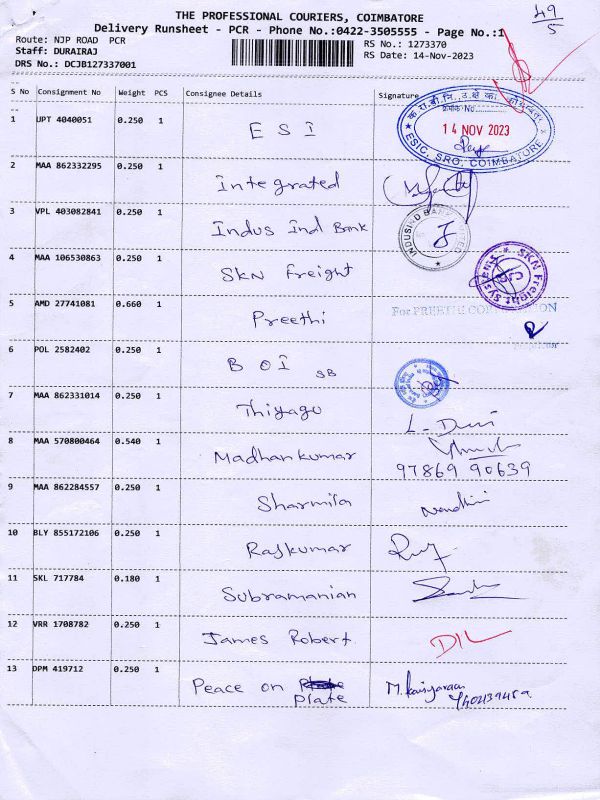 THE PROFESSIONAL COURIERS, COIMBATORE
Delivery Runsheet - PCR - Phone No.:0422-3505555 - Page No.:1
49/5
Route: NJP ROAD PCR
RS No.: 1273370
Staff: DURAIRAJ
RS Date: 14-Nov-2023
DRS No.: DCJB127337001
S No Consignment No Weight PCS Consignee Details Signature
1 UPT 4040051 0.250 1 ESI
14 NOV 2023
ESIC, SRO, COIMBATORE
2 MAA 862332295 0.250 1 Integrated
3 VPL 403082841 0.250 1 Indus Ind Bank
INDUSIND BANK LIMITED
4 MAA 106530863 0.250 1 SKN Freight
SKN Freight Systems
5 AMD 27741081 0.660 1 Preethi
For PREETHI
6 POL 2582402 0.250 1 BOI SB
7 MAA 862331014 0.250 1 Thiyagu
8 MAA 570800464 0.540 1 Madhankumar
97869 90639
9 MAA 862284557 0.250 1 Sharmila Nandhini
10 BLY 855172106 0.250 1 Rajkumar
11 SKL 717784 0.180 1 Subramanian
12 VRR 1708782 0.250 1 James Robert D/L
13 DPM 419712 0.250 1 Peace on
Plate